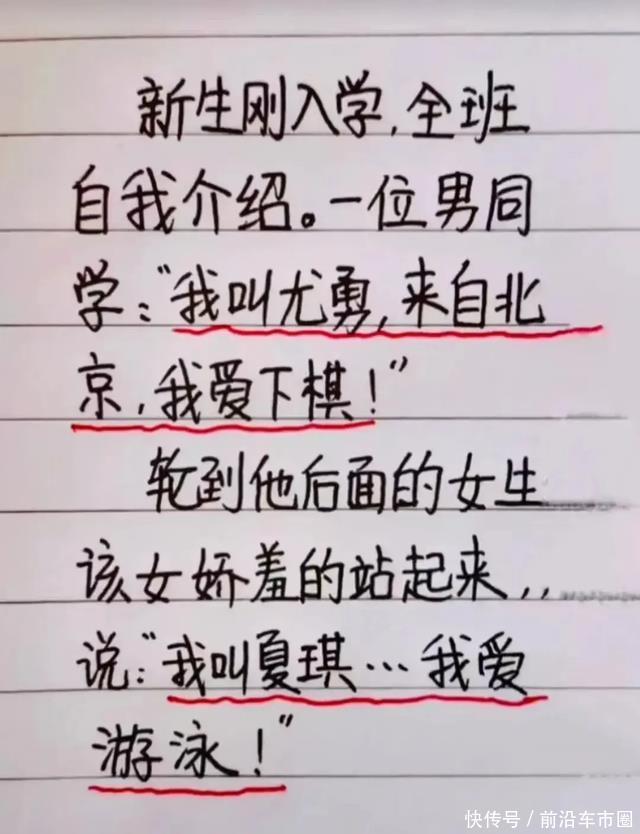 新生刚入学,全班
自我介绍。一位男同
学:“我叫尤勇,来自北
京,我爱下棋!”
轮到他后面的女生
该女娇羞的站起来,,
说:“我叫夏琪…我爱
游泳!”
快传号/前沿车市圈